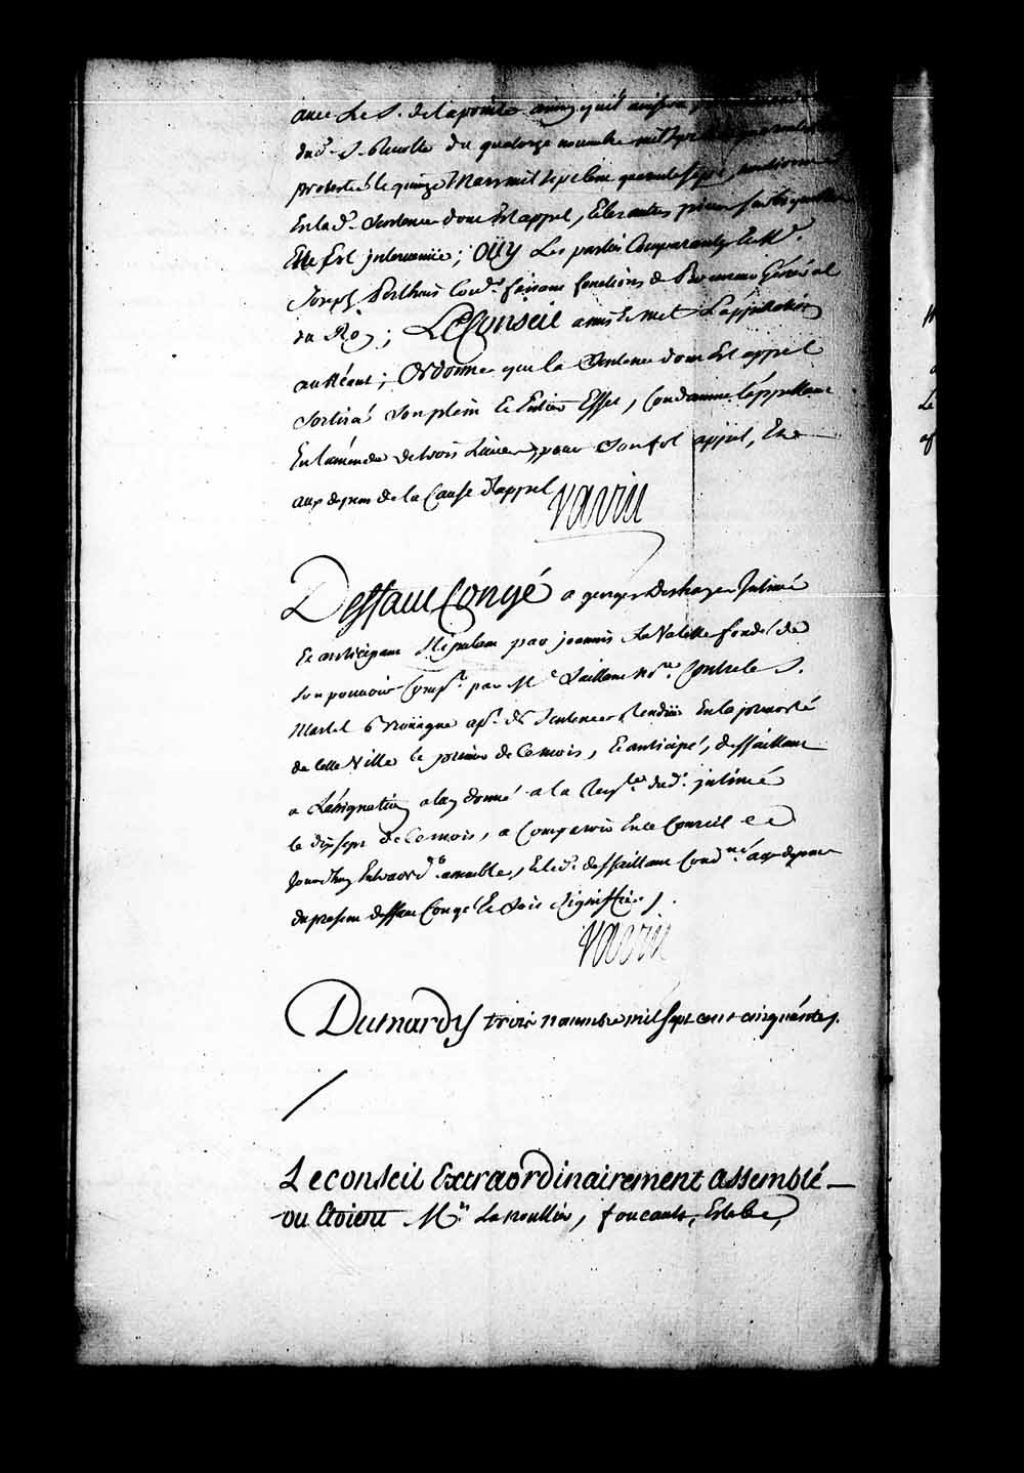 avec Le S. de Lapointe ainsy qu'il
dud. S. du quatorze novembre mil
protesté le quinze Mars mil sept cent quarante sept mentionné
En lad. Sentence dont Est appel, Et les autres pieces sur lesquelles
Elle Est intervenüe; Oüy Les parties Comparantes Et Me.
Joseph Perthuis Conr. faisant fonctions de Procureur Général
du Roy; Le Conseil a mis Et Met L'appellation
au Néant; Ordonne que la Sentence dont Est appel
Sortira Son plein Et Entier Effet, Condamne l'appellant
En lamende de trois Livres pour Son fol appel, Et
aux depens de la Cause d'appel
Varin
Deffaut Congé a georges Deshayes Intimé
Et anticipant Stipulant par joannis LaValette fondé de
Son pouvoir Comp.t par Me Saillant Nore. Contre le S.
Martel Brouague apt. de Sentence Rendüe En la prevosté
de Cette Ville le premier de Ce mois, Et anticipé, deffaillant
a L'assignation a luy donné a la Reqte. dud. intimé
le dix sept de Ce mois, a Comparoir En ce Conseil
Jourd'huy, Et led. deffaillant Condné. aux depens
du present deffaut Congé Et Soit Signiffié,
Varin
Du mardy trois novembre mil sept cent cinquante,
Le conseil Extraordinairement assemblé
ou Etoient Mrs. Lanoullier, foucault, Estebe,